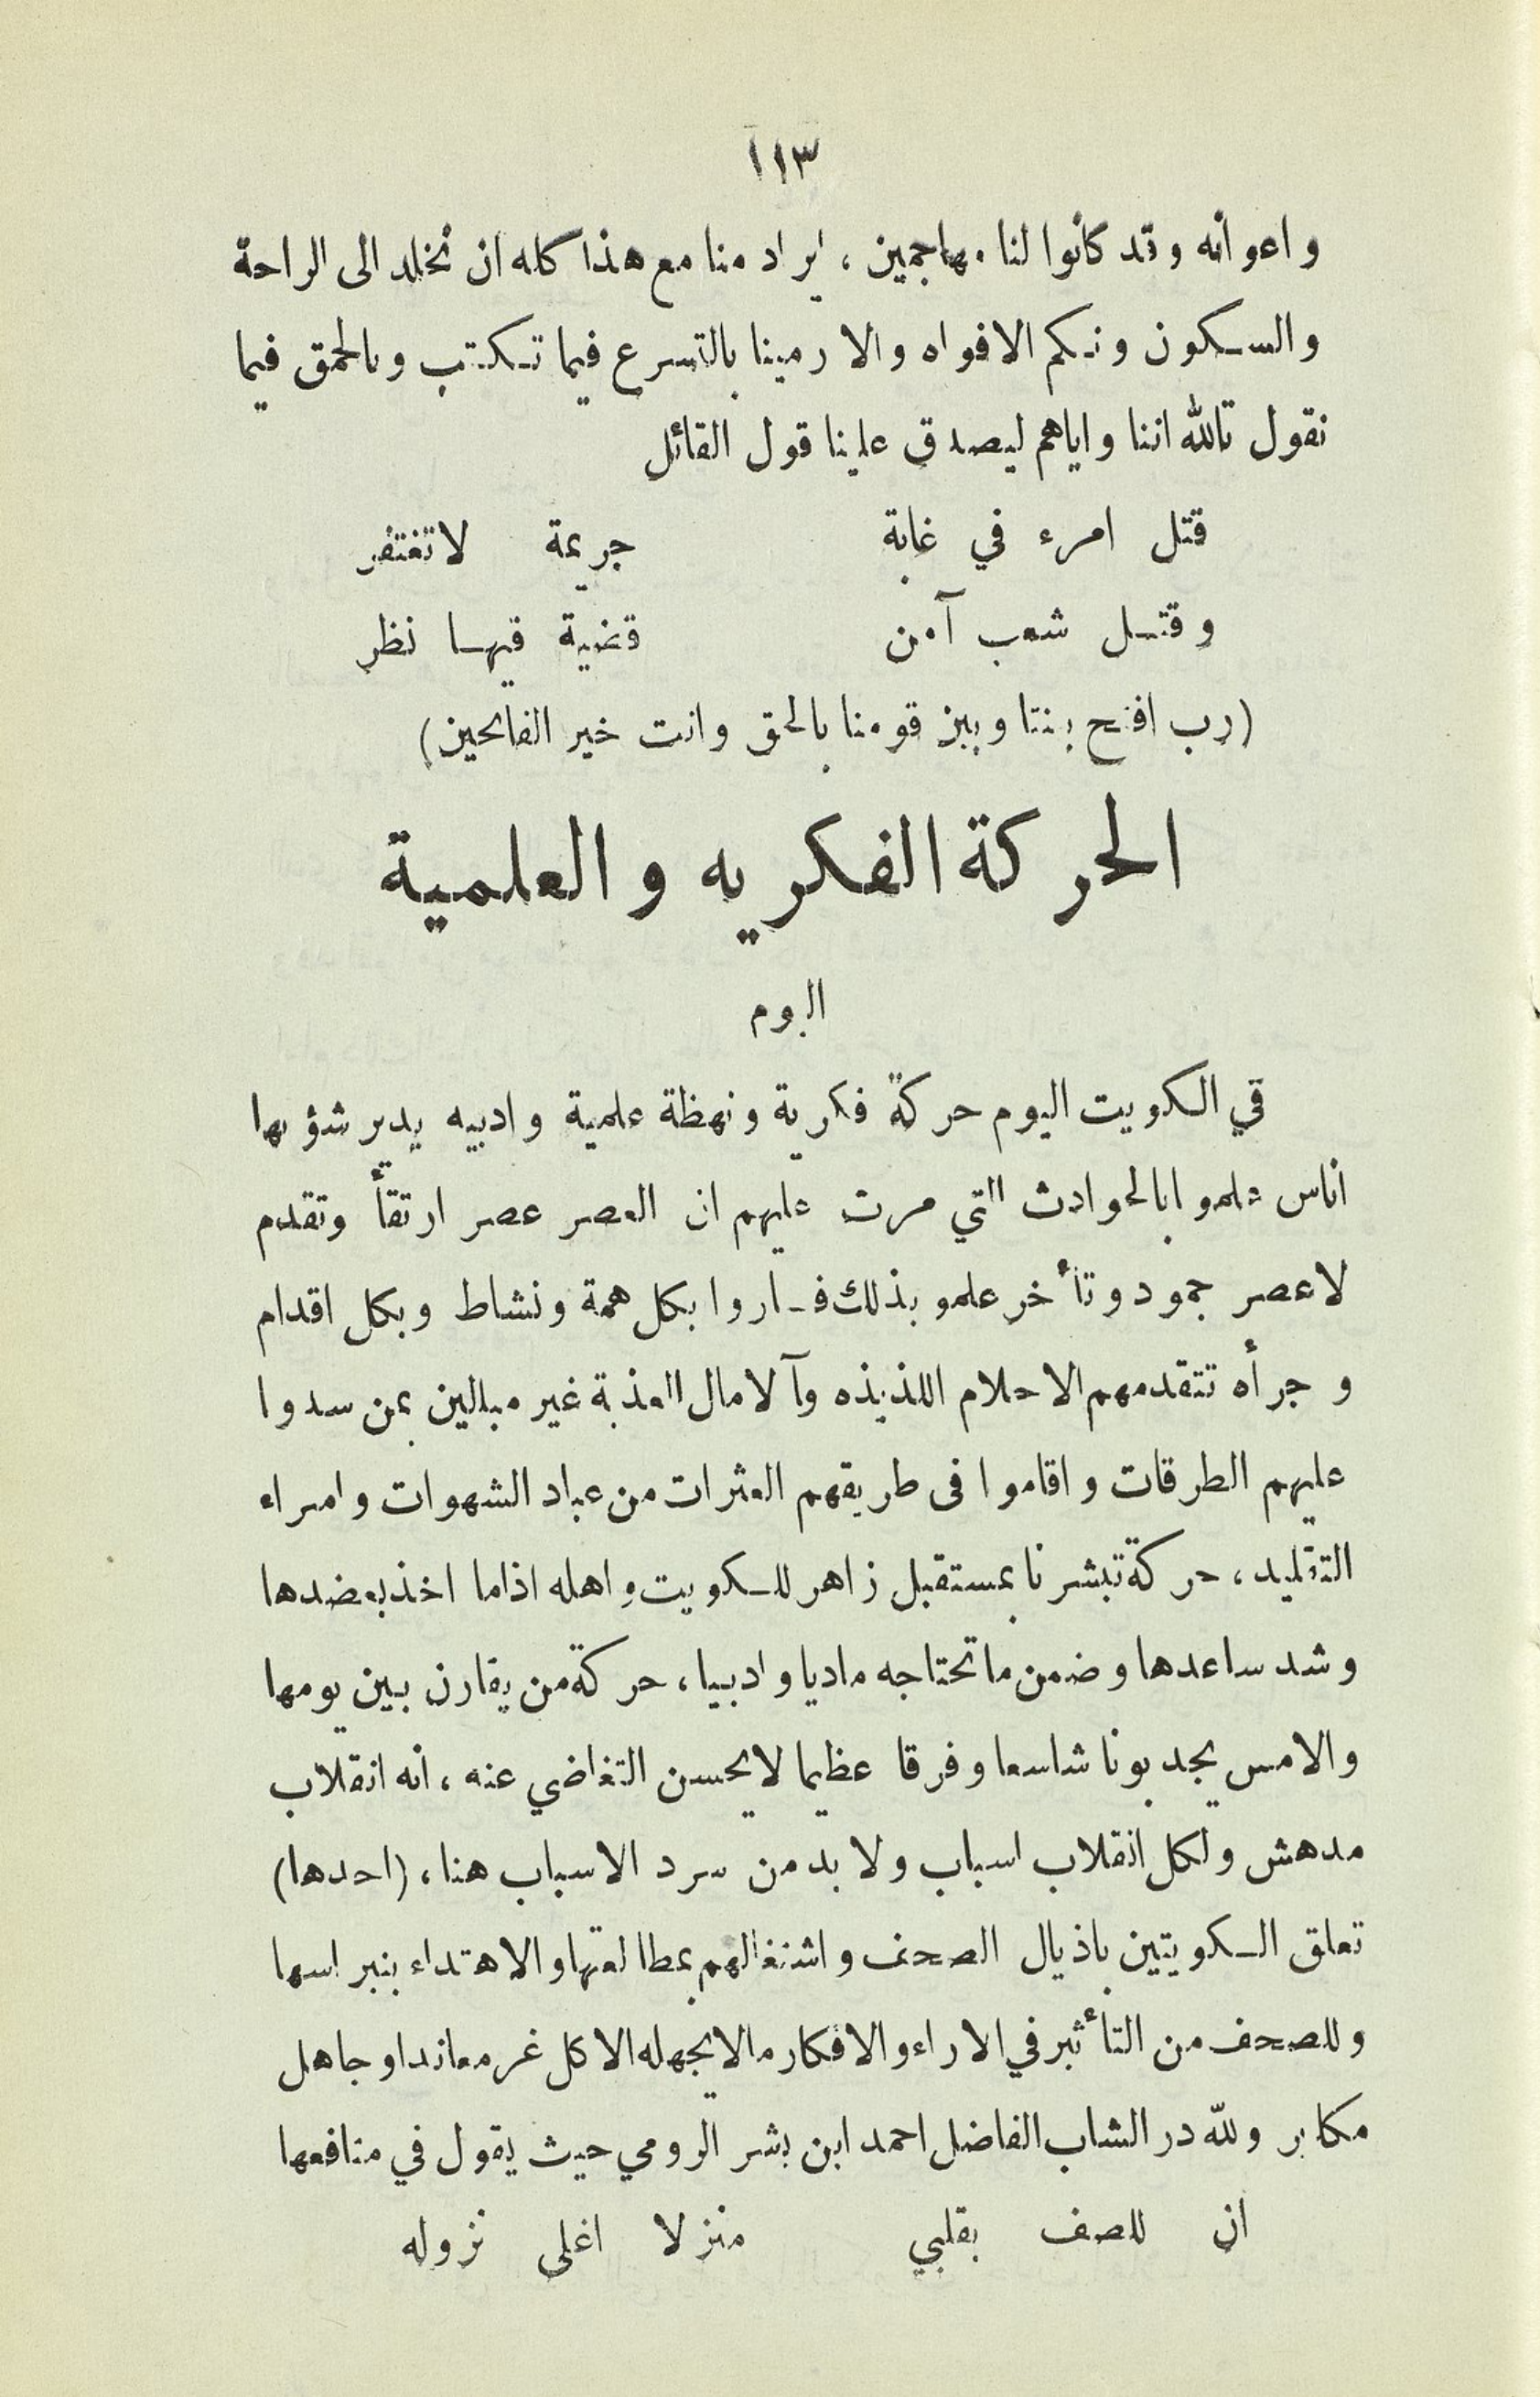 ١١٣
واعوانه وقد كانوا لنا مهاجمين ، ايراد منا مع هذا كله ان نخلد الى الراحة
والسكون ونكم الافواه والا رمينا بالتسرع فيما نكتب وبالحمق فيما
نقول تالله اننا واياهم ليصدق علينا قول القائل
قتل امرء في غابة جريمة لاتغتفر
وقتل شعب آمن قضية فيها نظر
(رب افتح بيننا وبين قومنا بالحق وانت خير الفاتحين)
الحركة الفكريه والعلمية
اليوم
في الكويت اليوم حركة فكرية ونهظة علمية وادبيه يدير شؤنها
اناس علموا بالحوادث التي مرت عليهم ان العصر عصر ارتقأ وتقدم
لاعصر جمود وتأخر علمو بذلك فساروا بكل همة ونشاط وبكل اقدام
وجرأه تتقدمهم الاحلام اللذيذه وآلامال العذبة غير مبالين بمن سدوا
عليهم الطرقات واقاموا فى طريقهم العثرات من عباد الشهوات وامراء
التقليد ، حركة تبشرنا بمستقبل زاهر للكويت واهله اذاما اخذ بعضدها
وشد ساعدها وضمن ماتحتاجه ماديا وادبيا ، حركة من يقارن بين يومها
والامس يجد بونا شاسعا وفرقا عظيما لايحسن التغاضي عنه ، انه انقلاب
مدهش ولكل انقلاب اسباب ولا بد من سرد الاسباب هنا ، (احدها)
تعلق الكويتين باذيال الصحف واشتغالهم بمطالعتها والاهتداء بنبراسها
وللصحف من التأثير في الاراء والافكار مالايجهله الا كل غر معاند او جاهل
مكابر ولله در الشاب الفاضل احمد ابن بشر الرومي حيث يقول في منافعها
ان للصف بقلبي منزلا اغلى نزوله